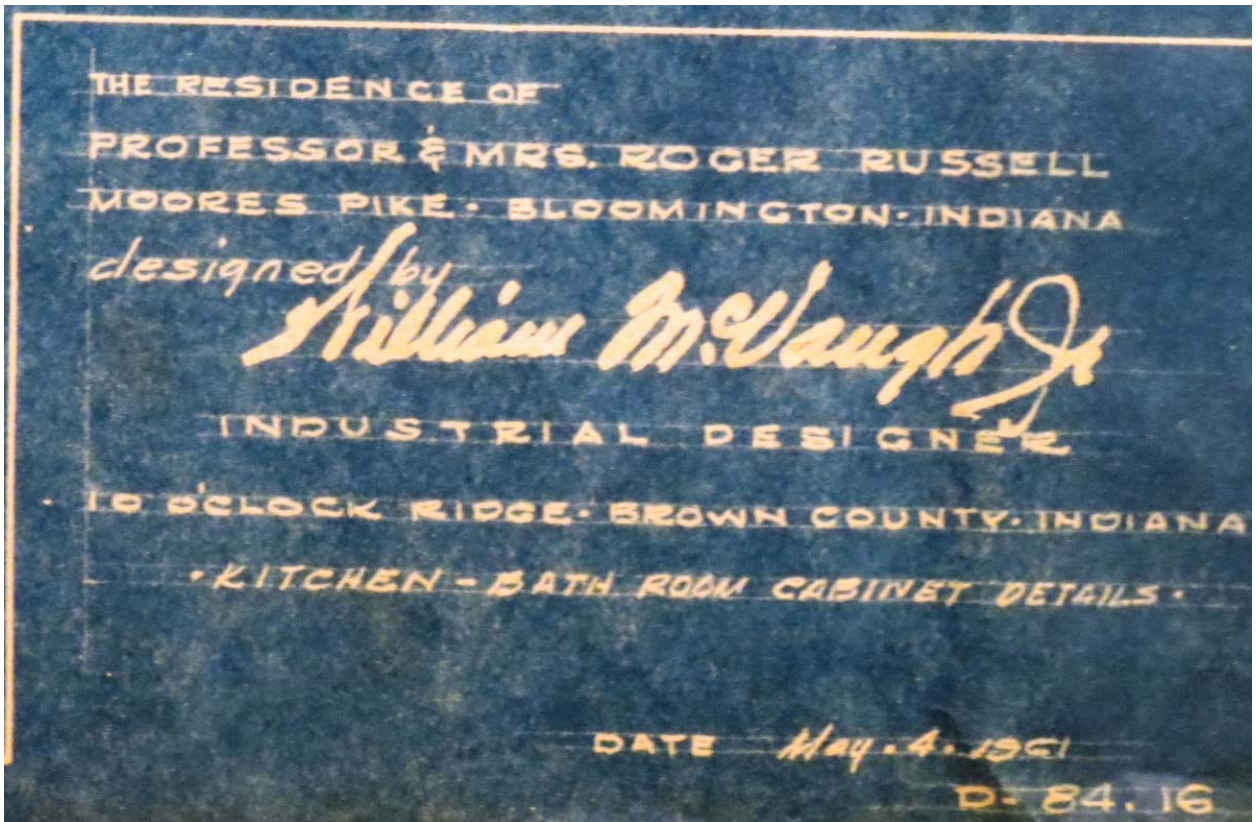 THE RESIDENCE OF
PROFESSOR & MRS. ROGER RUSSELL
MOORES PIKE · BLOOMINGTON · INDIANA
designed by
William McVaugh Jr
INDUSTRIAL DESIGNER
10 O'CLOCK RIDGE · BROWN COUNTY · INDIANA
· KITCHEN - BATH ROOM CABINET DETAILS ·
DATE May. 4. 1961
D- 84.16